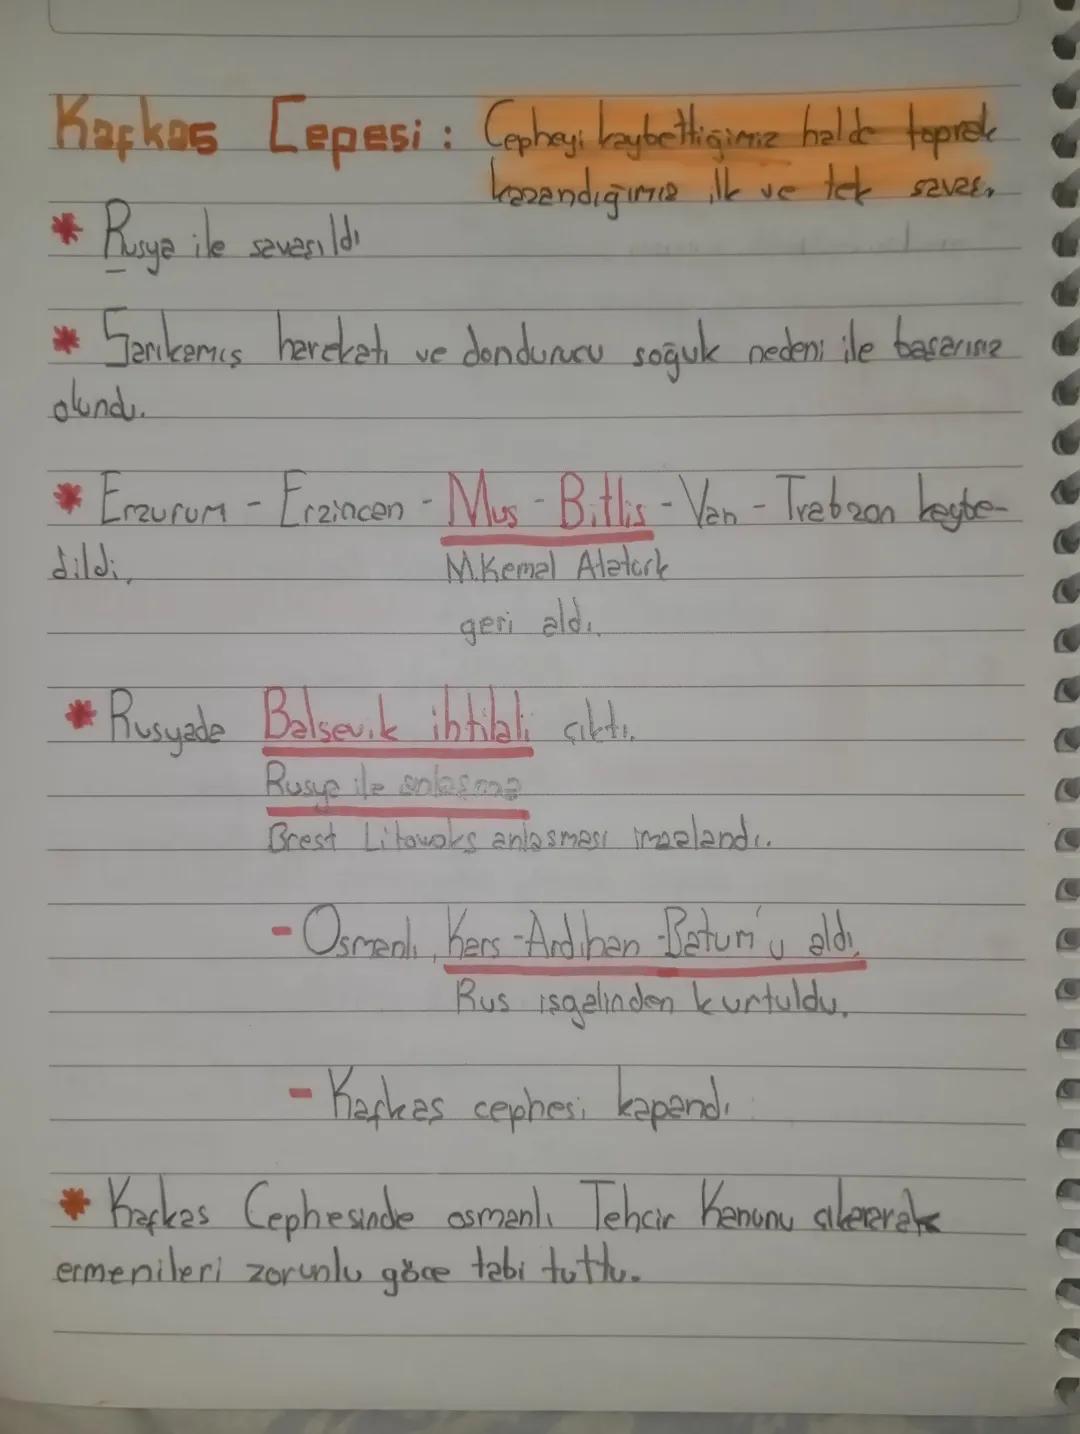 Kafkas Cepesi : Cepheyi kaybettiğimiz halde toprak
kazandığımız ilk ve tek savaş.
* Rusya ile savaşıldı
* Sarıkamış harekatı ve dondurucu soğuk nedeni ile başarısız
olundu.
* Erzurum - Erzincan - Mus - Bitlis - Van - Trabzon kaybe-
dildi,
M.Kemal Atatürk
geri aldı.
* Rusyada Balsevik ihtilali çıktı.
Rusya ile anlaşma
Brest Litowoks anlasması imzalandı.
- Osmanlı, Kars - Ardıhan - Batum'u aldı.
Rus işgalinden kurtuldu.
- Kafkas cephesi kapandı
* Kafkas Cephesinde osmanlı Tehcir Kanunu çıkararak
ermenileri zorunlu göce tabi tuttu.